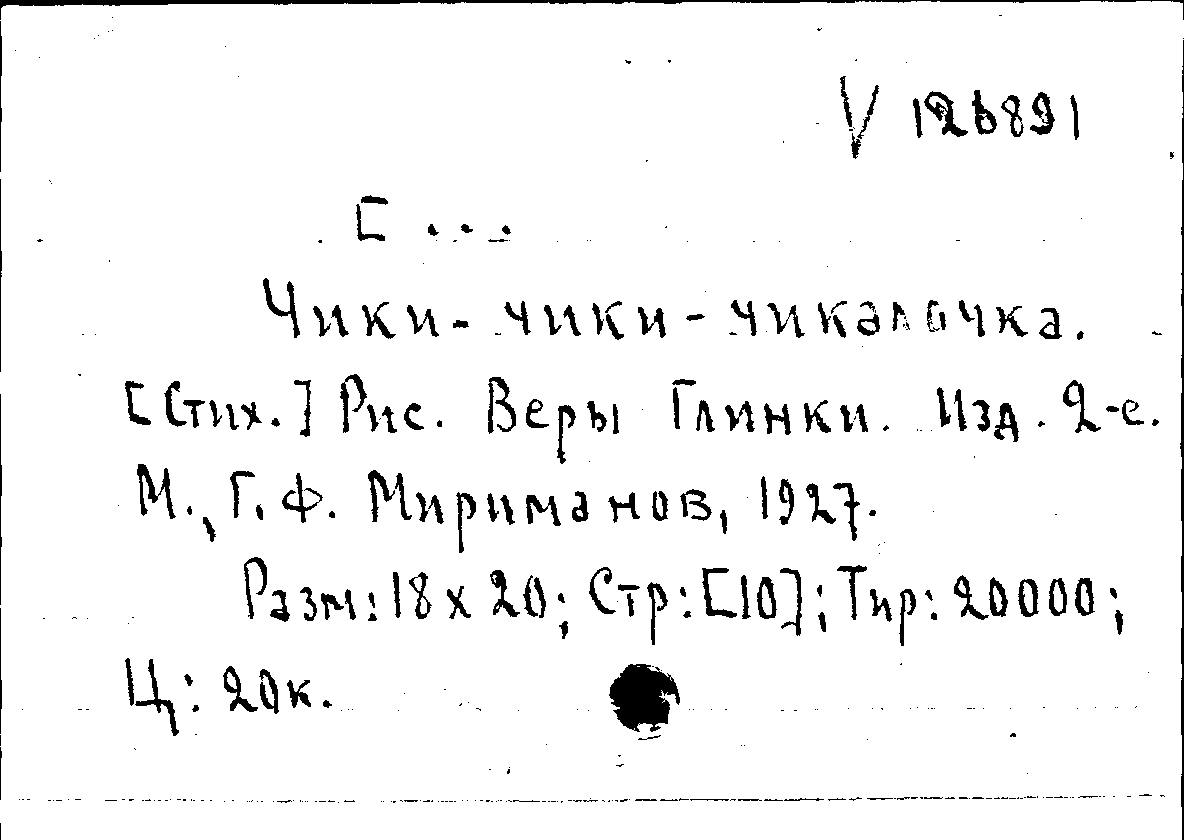 V 126891
[ ...
Чики-чики-чикалочка.
[Стих.] Рис. Веры Глинки. Изд. 2-е.
М., Г. Ф. Мириманов, 1927.
Разм: 18 х 20; Стр: [10]; Тир: 20000;
Ц: 20к.